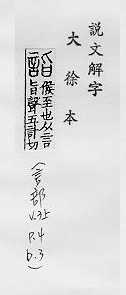 說文解字
大徐本
詣 候至也从言
旨聲五計切
(言部
v.35
p.4
b.3)